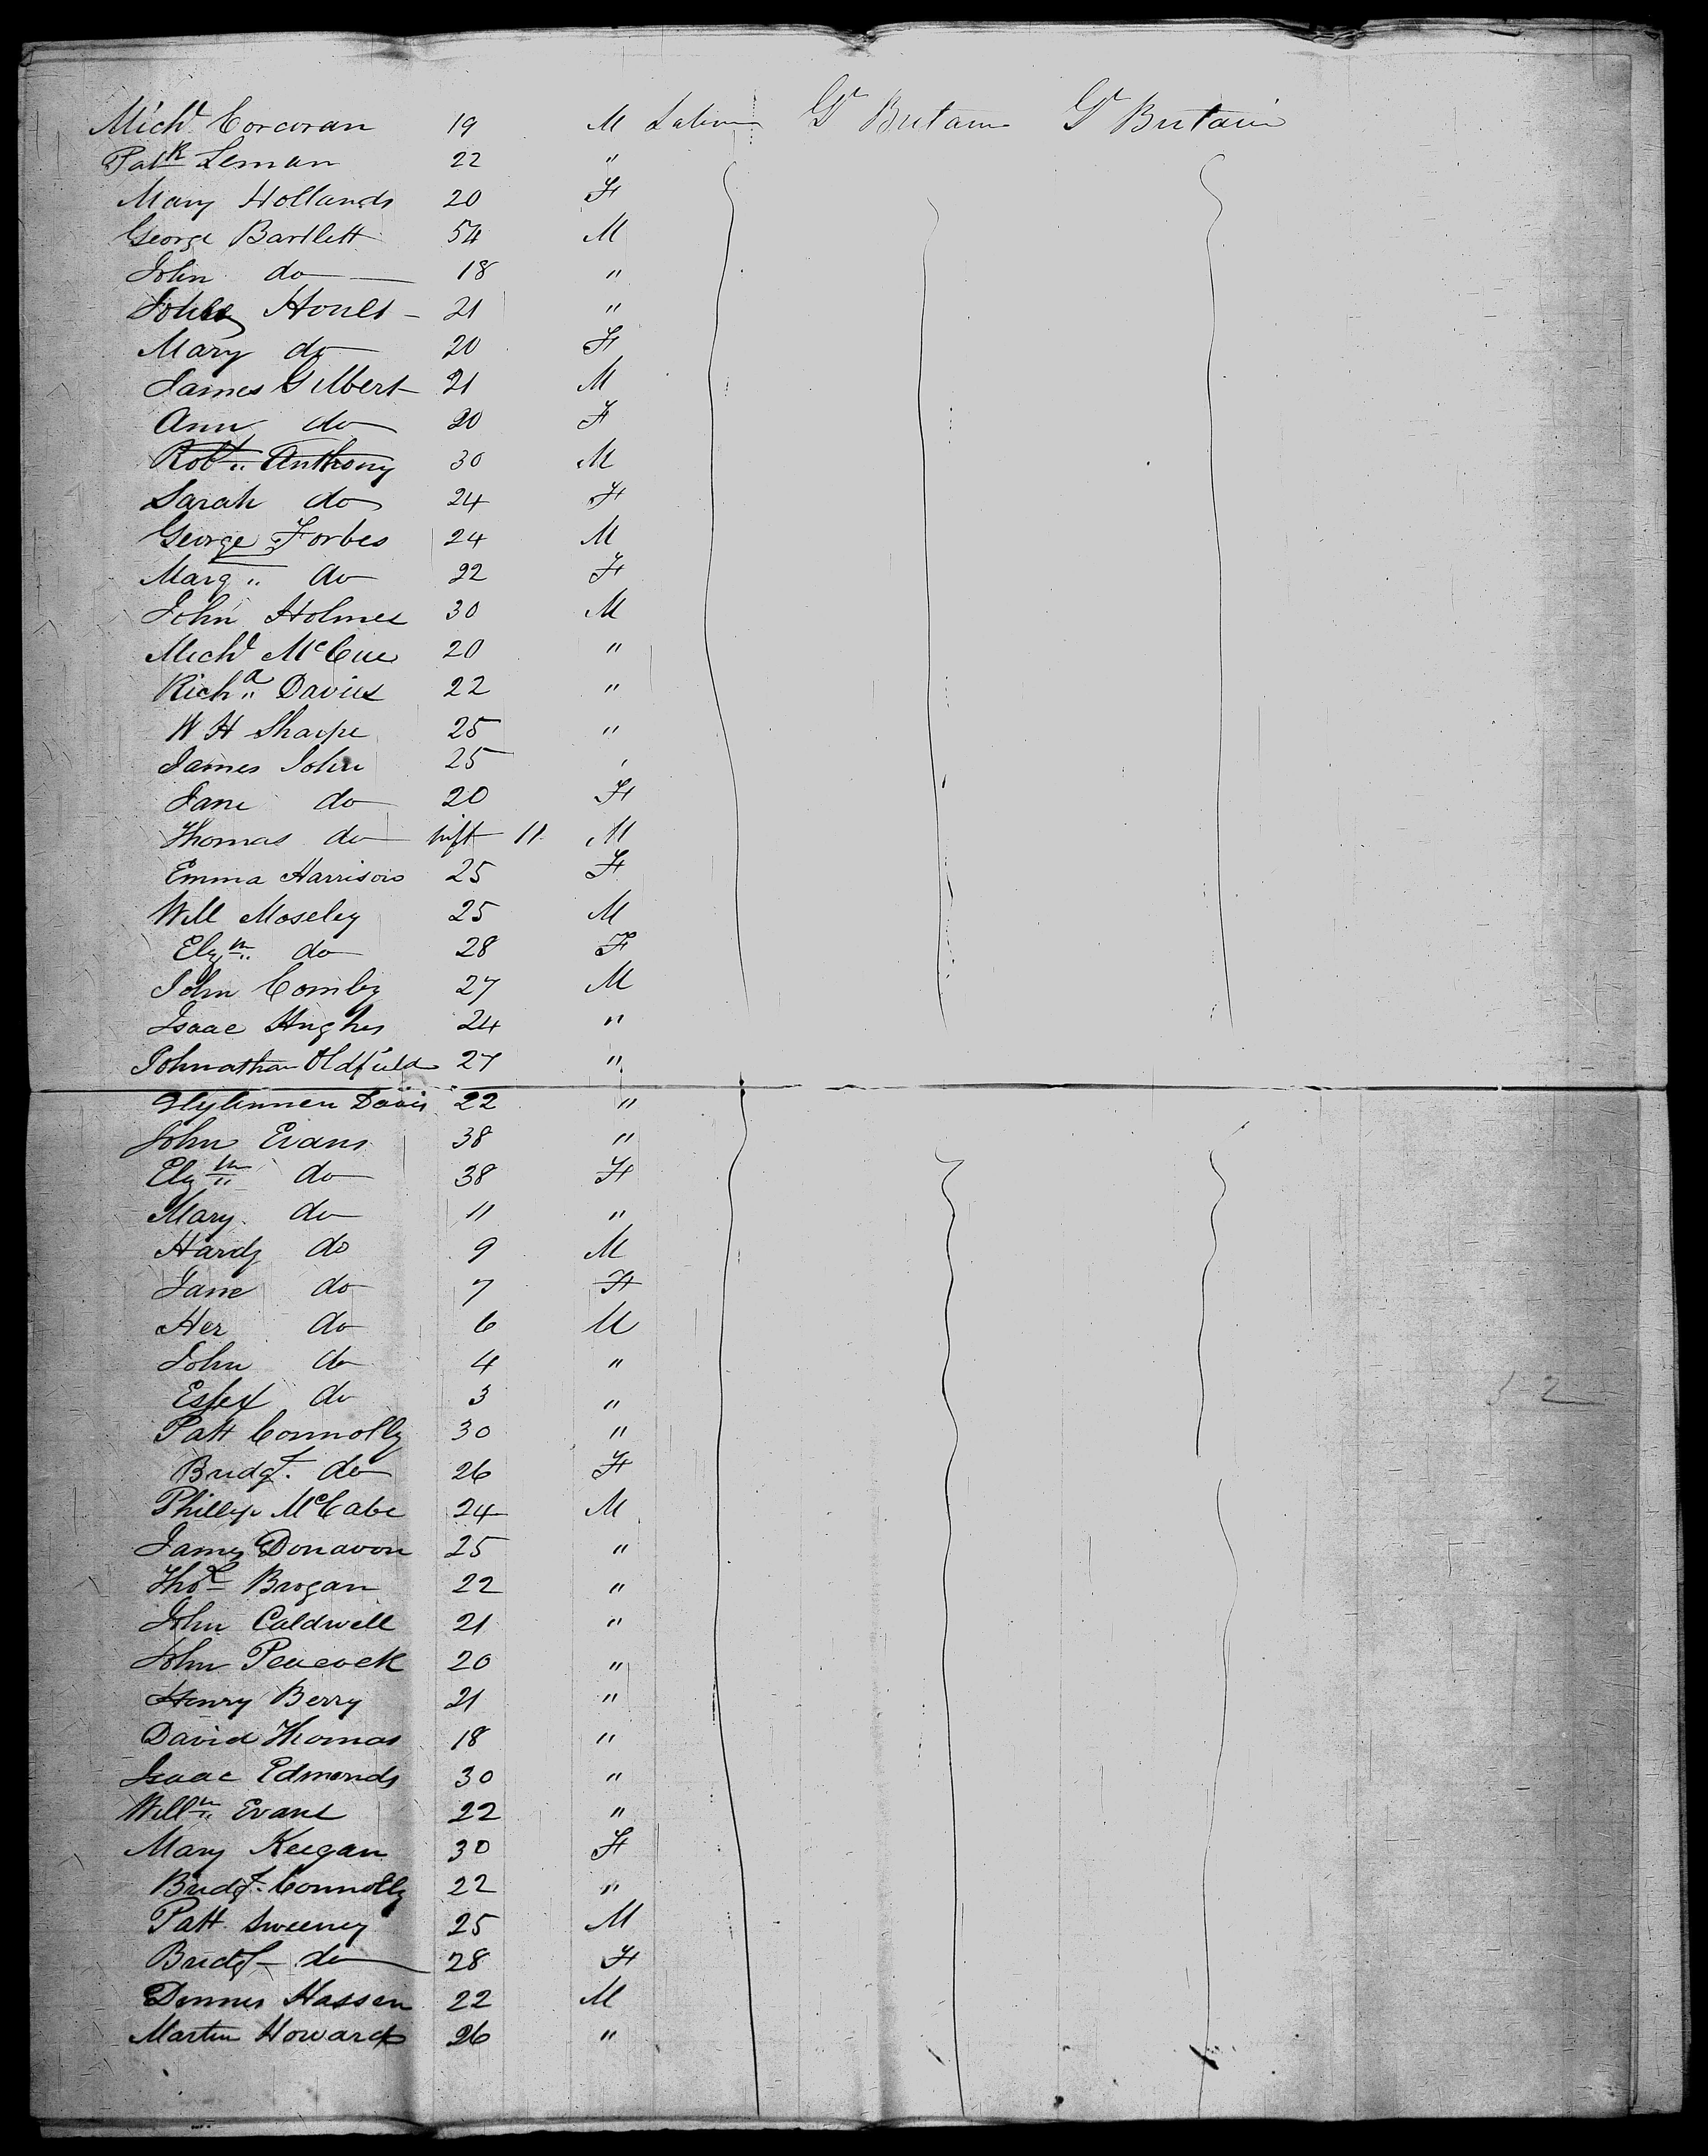 Michl Corcoran 19 M Labour Gt Britain Gt Britain
Patk Leman 22 "
Mary Hollands 20 F
George Bartlett 54 M
John do 18 "
John Hoult 21 "
Mary do 20 F
James Gilbert 21 M
Ann do 20 F
Robt Anthony 30 M
Sarah do 24 F
George Forbes 24 M
Marg " do 22 F
John Holmes 30 M
Michl McCue 20 "
Richd Davies 22 "
W H Sharpe 25 "
James John 25 '
Jane do 20 F
Thomas do inft 11 M
Emma Harrison 25 F
Will Moseley 25 M
Elzth do 28 F
John Comley 27 M
Isaac Hughes 24 "
Johnathan Oldfield 27 "
Davis 22 "
John Evans 38 "
Elzth do 38 F
Mary do 11 "
Hardy do 9 M
Jane do 7 F
Her do 6 M
John do 4 "
do 3 "
Patt Connolly 30 "
Bridgt. do 26 F
Phillip McCabe 24 M
James Donavon 25 "
Thos Brogan 22 "
John Caldwell 21 "
John Peacock 20 "
Henry Berry 21 "
David Thomas 18 "
Isaac Edmonds 30 "
Willm Evans 22 "
Mary Keegan 30 F
Bridgt. Connolly 22 "
Patt Sweeney 25 M
Bridgt do 28 F
Dennis Hassen 22 M
Martin Howard 26 "